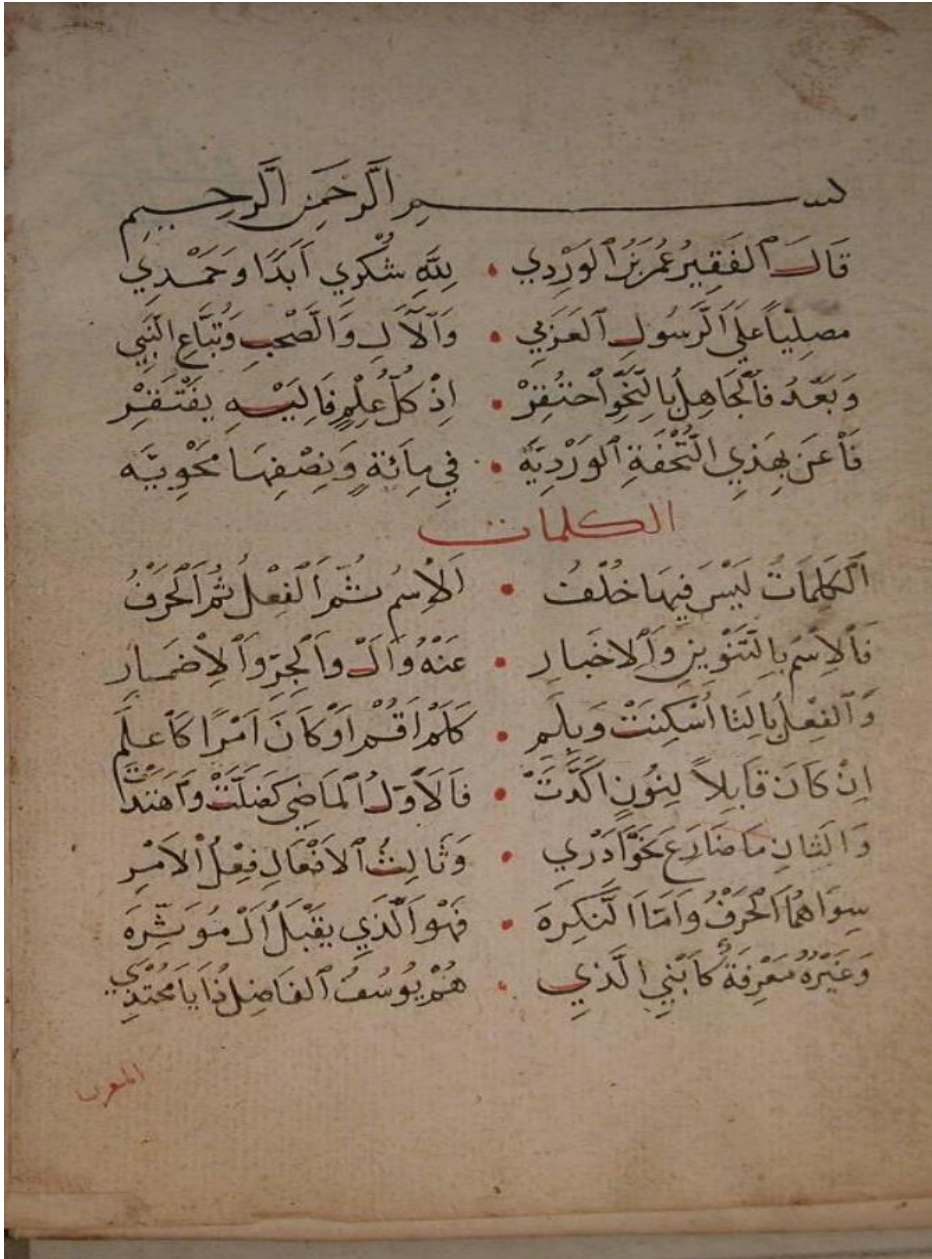 بســـم الَّرحمن الَّرحيم
قَالَ الفَقِيرُ عُمَرُ بْنُ الوَرْدِي • لِلَّهِ شُكْرِي اَبَدًا وَحَمْدِي
مصلِياً عَلَى الَّرَسُولِ العَرَبِي • وَالآلِ وَالَّصَحْبِ وَتُبَّاعِ النَّبِي
وَبَعْدُ فَالجَاهِلُ بِالنَّحْوِ احْتُقِرْ • اِذْ كُلُّ عِلْمٍ فَاِلَيْهِ يَفْتَقِرْ
فَاْعَن بِهَذِي التُّحْفَةِ الوَرْدِيَّه • فِي مِائَةٍ وَنِصْفِهَا مَحْوِيَّه
الكلمات
الكَلِمَاتُ لَيْسَ فِيهَا خُلْفُ • اَلاِسْمُ ثُمَّ الفِعْلُ ثُمَّ الحَرْفُ
فَالاِسْمُ بِالتَّنْوِينِ وَالاِخبارِ • عَنْهُ وَاَلْ وَالجَرِّ وَالاِضْمَارِ
وَالفِعْلُ بِالتَا اُسْكِنَتْ وَبِلَمِ • كَلَمْ اَقُمْ اَوْ كَانَ اَمْرًا كَاعلَمِ
اِنْ كَانَ قَابِلاً لِنُونٍ اَكَّدَتْ • فَالاَوَّلُ المَاضِي كَضَلَّتْ وَاهتَدَتْ
وَالثَانِ مَا ضَارَعَ نَحْوَ اَدْرِي • وَثَالِثُ الاَفْعَالِ فِعْلُ الاَمْرِ
سِوَاهُمَا الحَرْفُ وَاَمَّا النَّكِرَه • فَهْوَ الَّذِي يَقْبَلُ اَلْ مُوَثِّرَه
وَغَيْرُهُ مَعْرِفَةٌ كَابْنِي الَّذِي • هُمْ يُوسُفُ الفَاضِلُ ذَا يَا مُحْتَذِي
المعرب